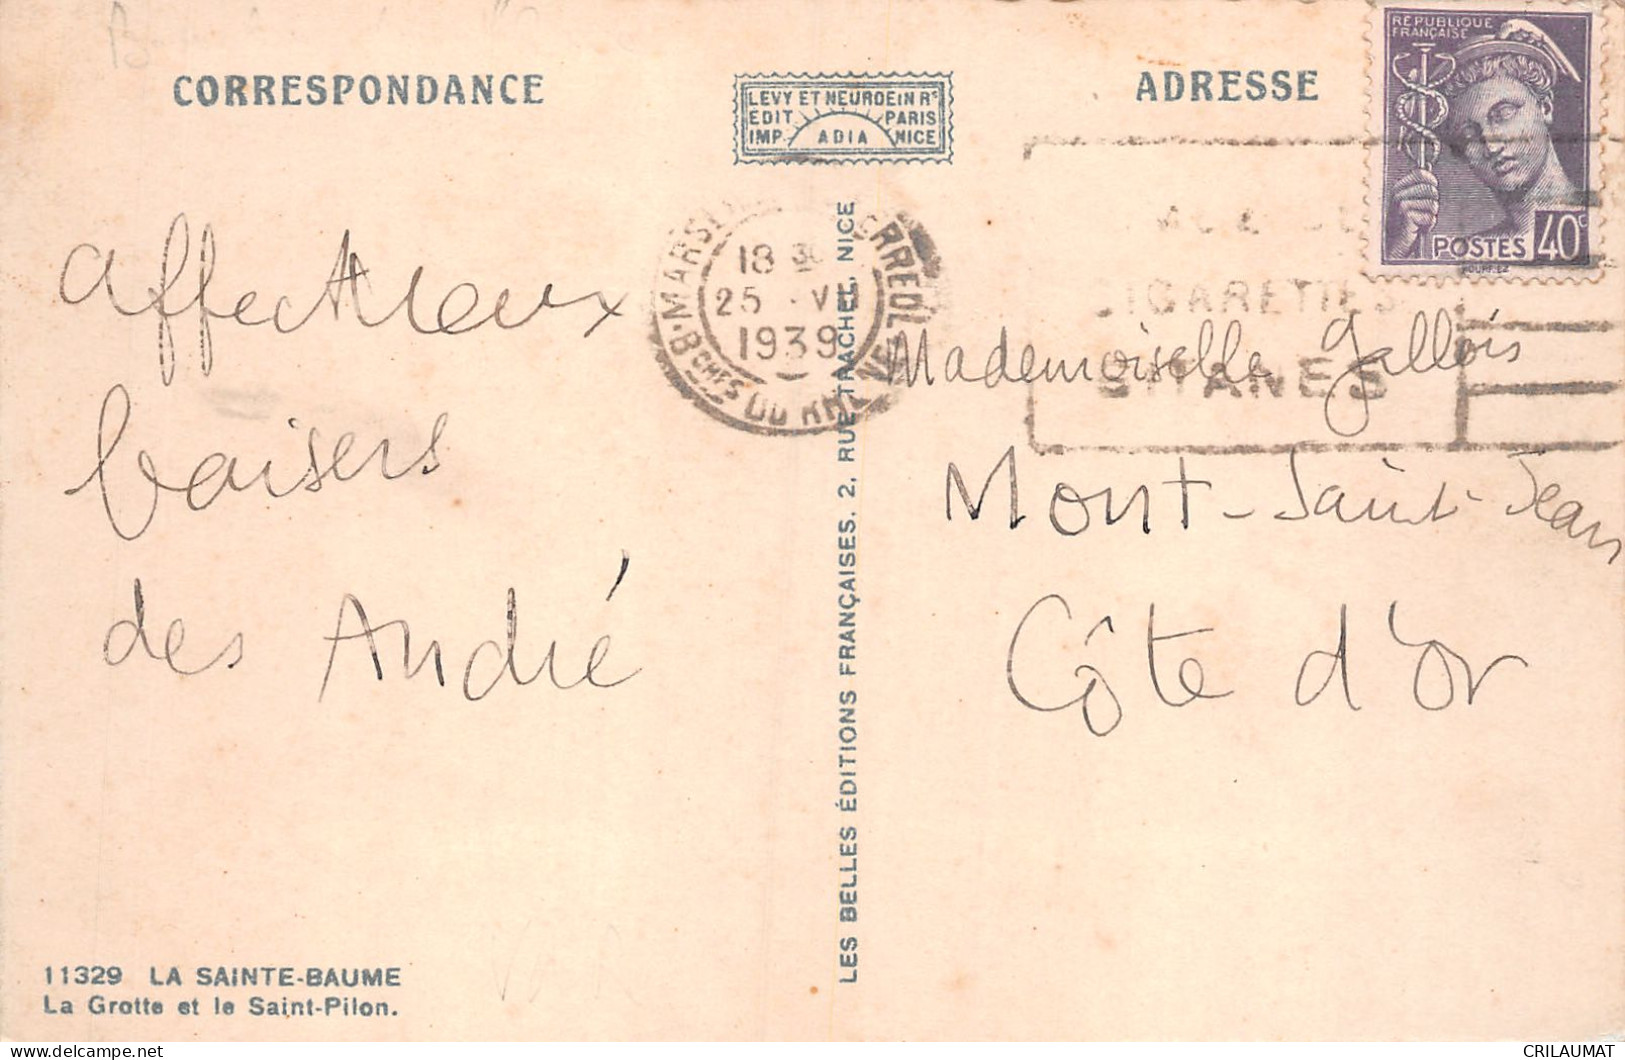 CORRESPONDANCE
LEVY ET NEURDEIN RS
EDIT PARIS
IMP. ADIA NICE
ADRESSE
RÉPUBLIQUE
FRANÇAISE
POSTES 40c
18 30
25 VII
1939
Bches DU RH
CIGARETTES
GITANES
Affectueux
baisers
des André
Mademoiselle Gallois
Mont-Saint-Jean
Côte d'Or
LES BELLES ÉDITIONS FRANÇAISES, 2, RUE TRACHEL, NICE
11329 LA SAINTE-BAUME
La Grotte et le Saint-Pilon.
CRILAUMAT